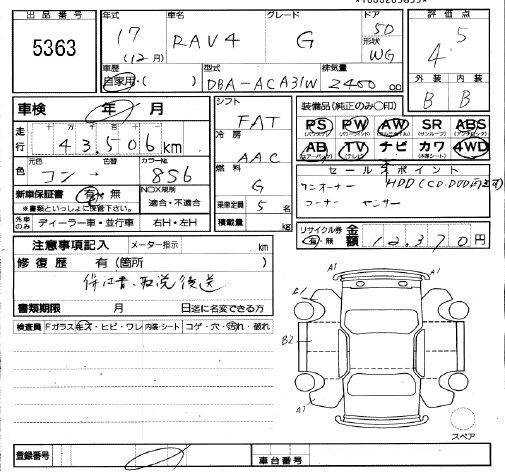 出品番号
5363
年式
17
(12月)
車名
RAV4
グレード
G
ドア
5D
形状
WG
評価点
4.5
外装 内装
B B
車歴
自家用・( )
型式
DBA-ACA31W
排気量
2400 cc
車検
年 月
走行
十万 万 千 百 十
43,506 km
元色
色替
カラーNo.
色
コン
856
新車保証書 有・無
※書類といっしょに保管下さい。
NOX規制
適合・不適合
外車のみ
ディーラー車・並行車 右H・左H
シフト
FAT
冷房
AAC
燃料
G
乗車定員
5 名
積載量
kg
装備品(純正のみ○印)
PS PW AW SR ABS
AB TV ナビ カワ 4WD
セールスポイント
ワンオーナー HDD(CD,DVD再生可)
コーナーセンサー
リサイクル券
有・無
金額
12,370円
注意事項記入 メーター指示 km
修復歴 有(箇所 )
保証書・取説後送
書類期限 月 日迄に名変できる方
検査員
Fガラス キズ・ヒビ・ワレ 内装・シート コゲ・穴・汚れ・破れ
A1
A1
B2
A1
A1
スペア
登録番号
車台番号